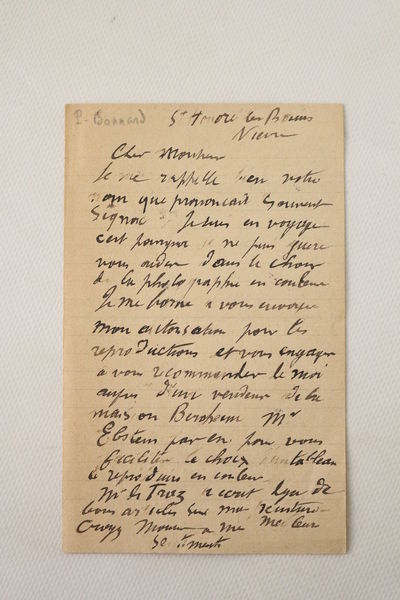 P. Bonnard
St Honoré les Bains
Nièvre
Cher Monsieur
Je me rappelle bien votre
nom que prononçait souvent
Signac Je suis en voyage
c'est pourquoi je ne puis guère
vous aider dans le choix
de la photographie en couleur
Je me borne à vous envoyer
mon autorisation pour les
reproductions et vous engager
à vous recommander de moi
auprès d'un vendeur de la
maison Bernheim Mr
pour vous
faciliter le choix tableau
à reproduire en couleur
Mr de a écrit de
bons articles sur ma peinture
Croyez Monsieur à mes meilleurs
sentiments